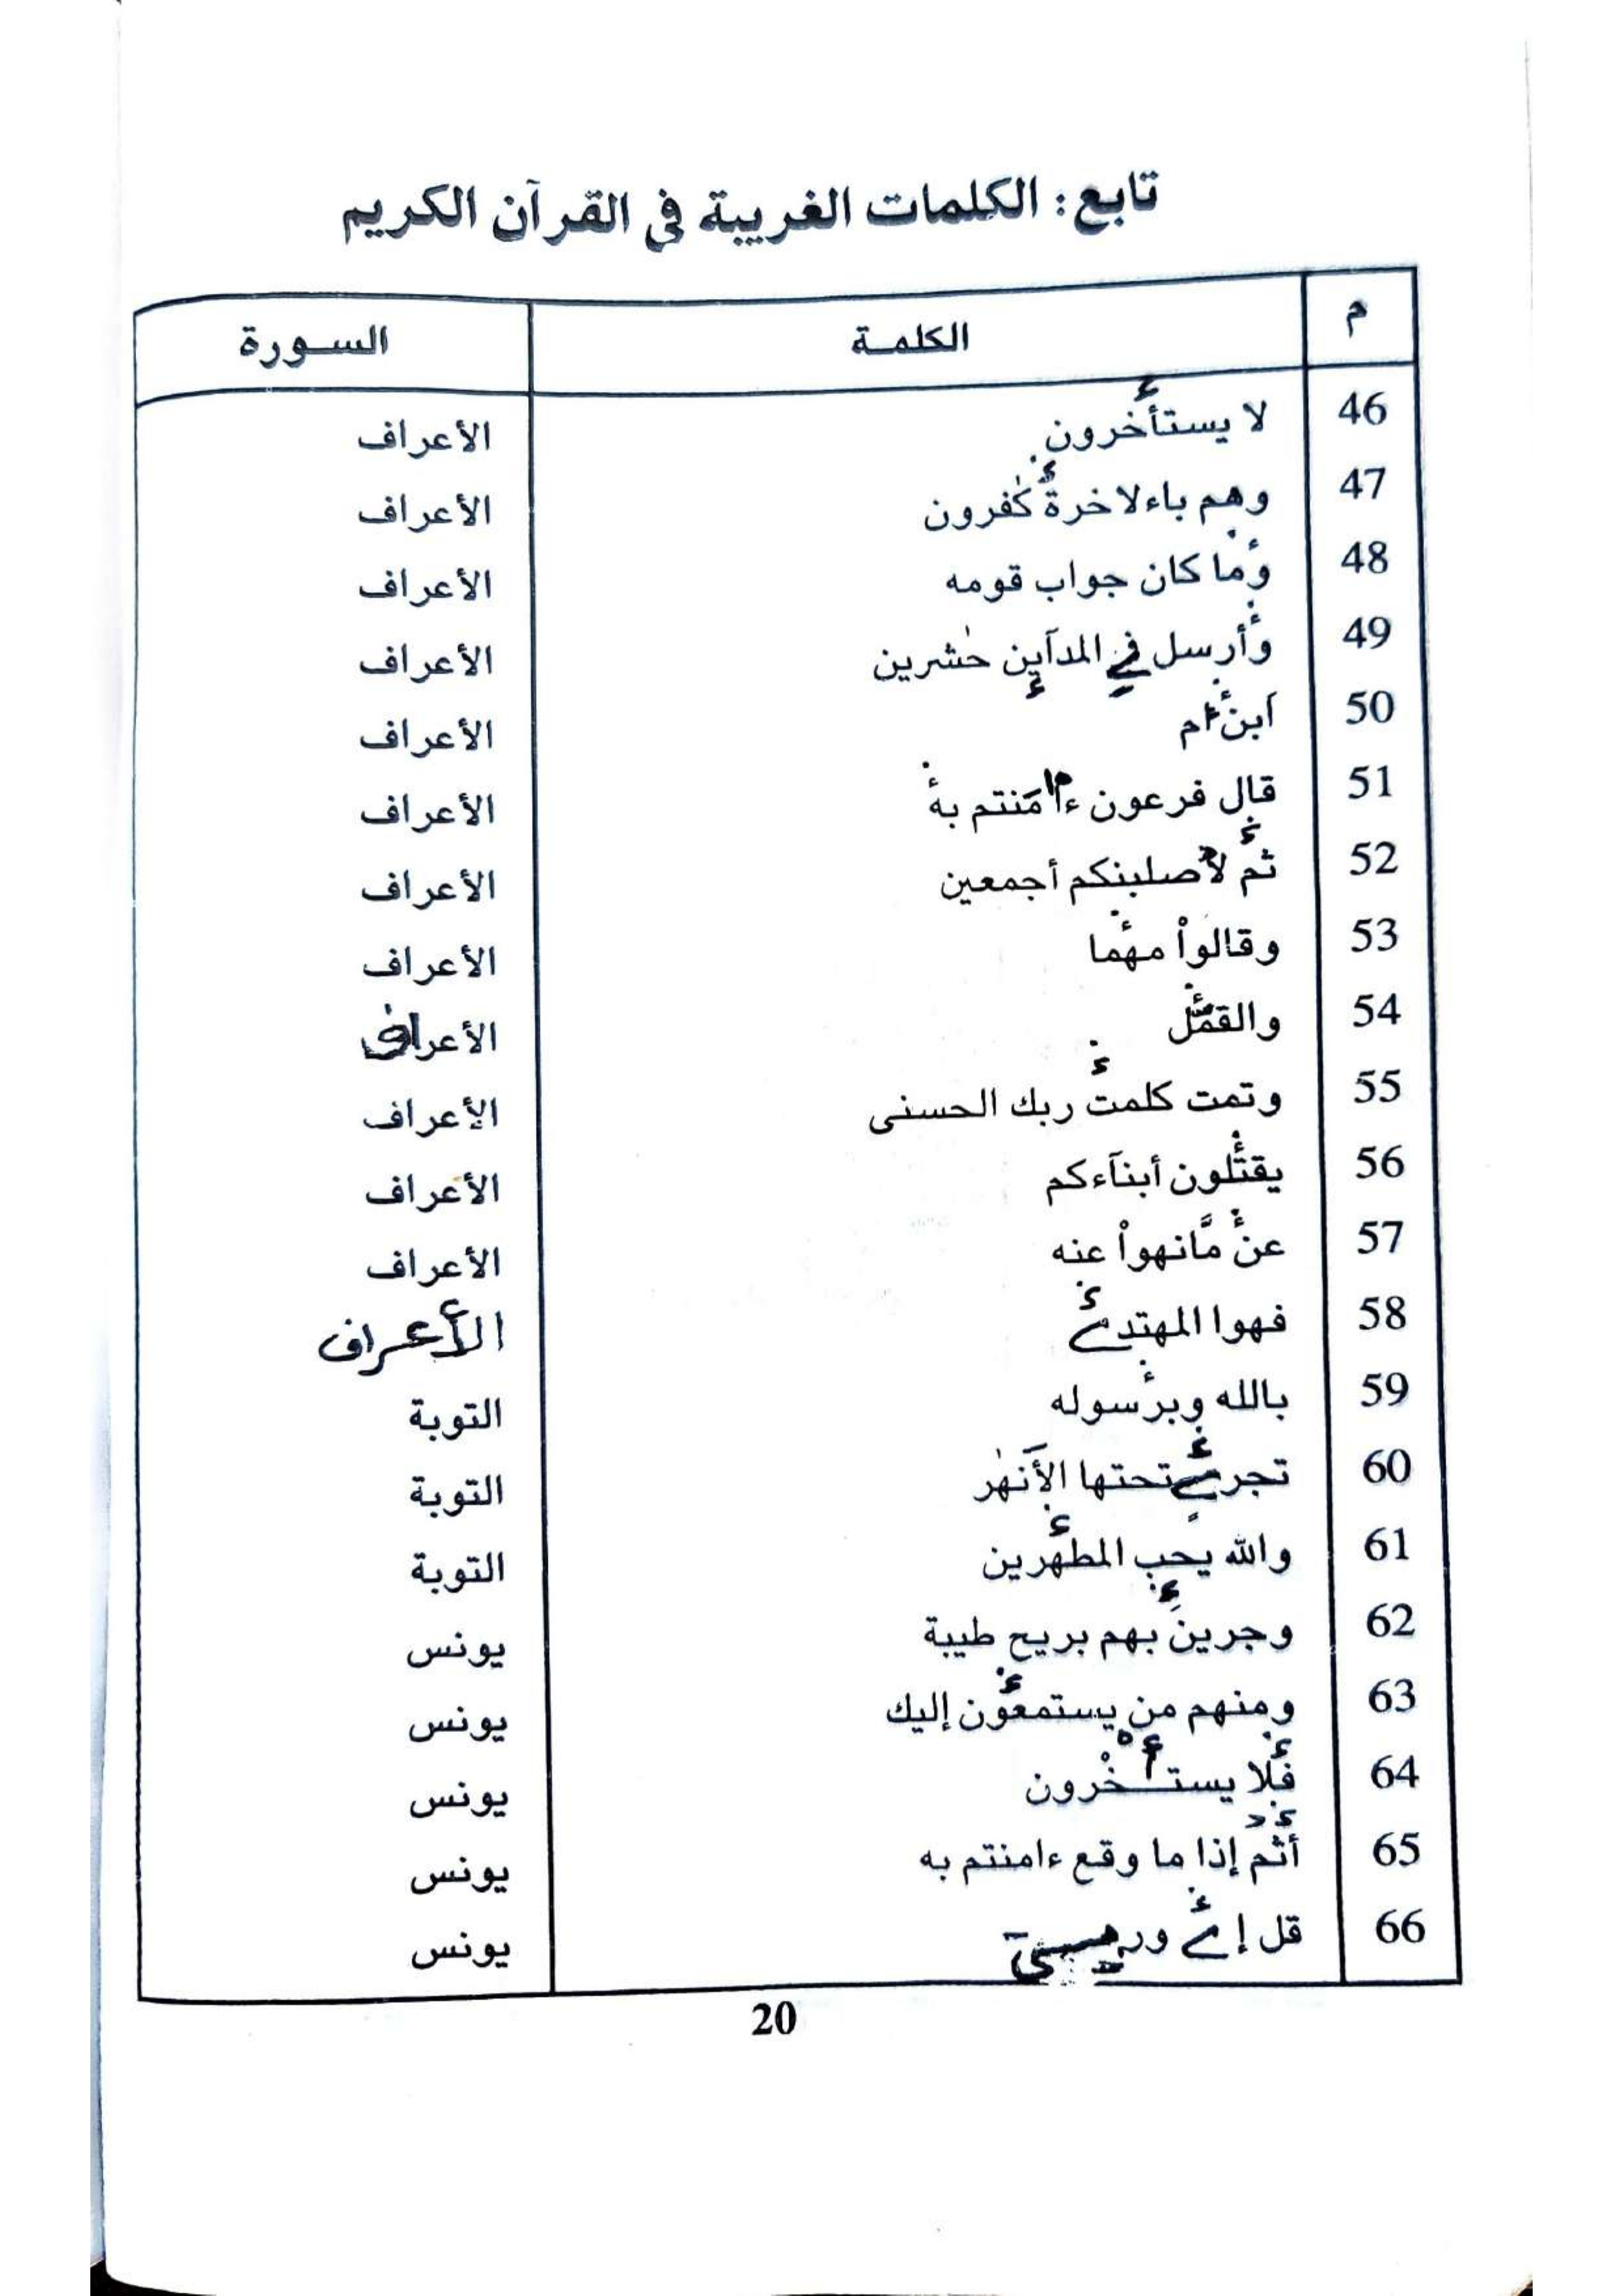 تابع : الكلمات الغريبة في القرآن الكريم
م الكلمـة السـورة
46 لا يستأخرون الأعراف
47 وهم باءلاخرة كٰفرون الأعراف
48 وما كان جواب قومه الأعراف
49 وأرسل في المدآين حٰشرين الأعراف
50 ابن أم الأعراف
51 قال فرعون ءامنتم به الأعراف
52 ثم لأصلبنكم أجمعين الأعراف
53 وقالواْ مهما الأعراف
54 والقمَّل الأعراف
55 وتمت كلمت ربك الحسنى الأعراف
56 يقتلون أبنآءكم الأعراف
57 عن مَّانهواْ عنه الأعراف
58 فهوا المهتدے الأعراف
59 بالله وبرسوله التوبة
60 تجرے تحتها الأنهٰر التوبة
61 والله يحب المطهرين التوبة
62 وجرين بهم بريح طيبة يونس
63 ومنهم من يستمعون إليك يونس
64 فلا يستأخرون يونس
65 أثم إذا ما وقع ءامنتم به يونس
66 قل إے يونس
20